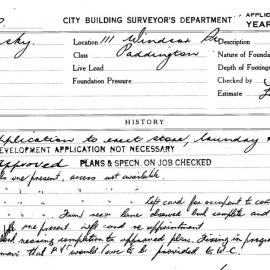 CITY BUILDING SURVEYOR'S DEPARTMENT
APPLIC
YEAR
sky.
Location 111 Windsor
Class Paddington
Live Load
Foundation Pressure
Description
Nature of Found
Depth of Footings
Checked by
Estimate
HISTORY
application to erect store, laundry
DEVELOPMENT APPLICATION NOT NECESSARY
Approved PLANS & SPECN. ON JOB CHECKED
No one present, access not available.
Left card for occupant to con
From rear lane observed bulk complete and
No one present. left card re appointment
completion to approved plan. Fixing in progre
would have to be provided to W.C.